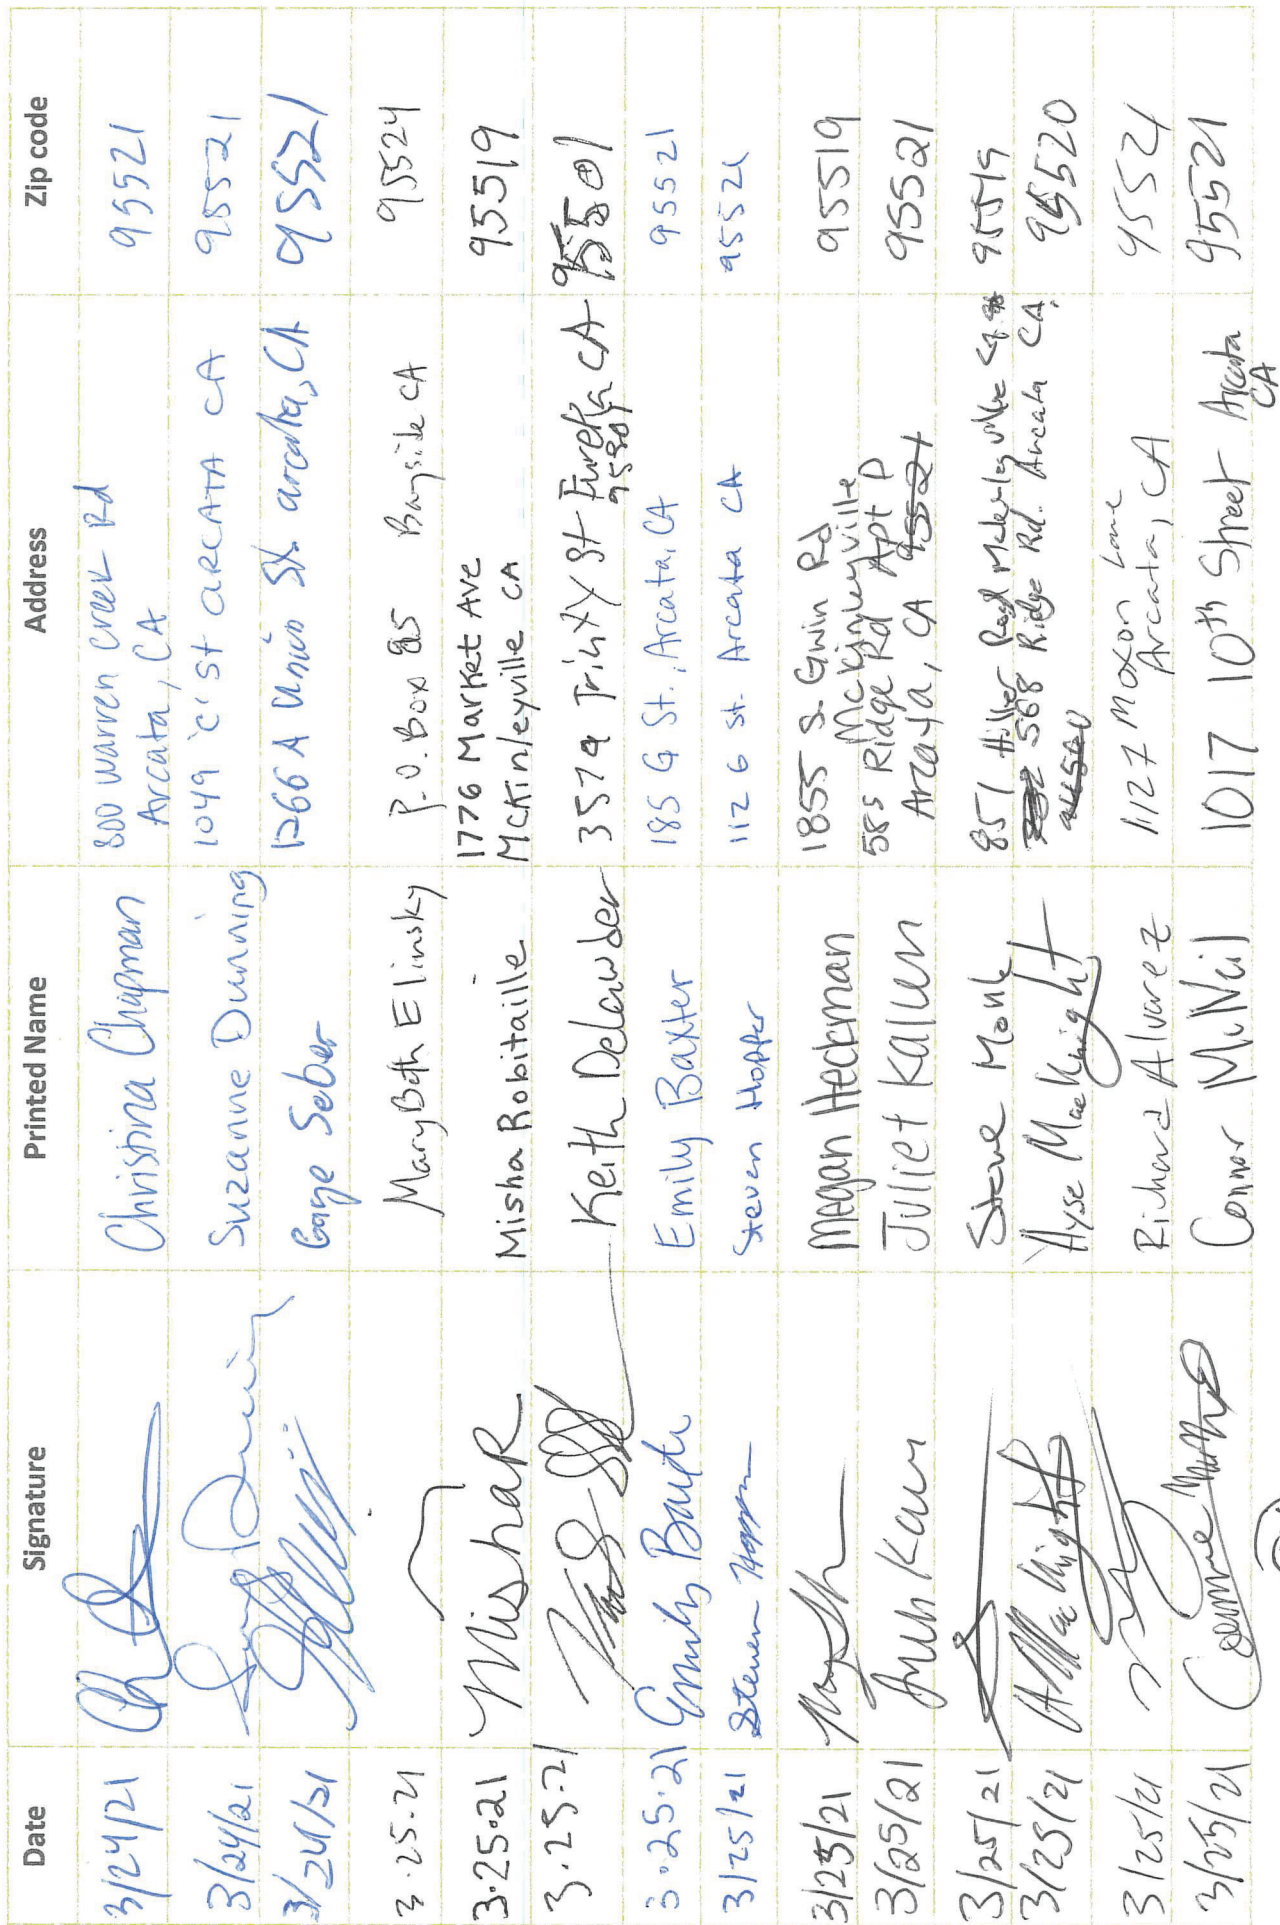 Date Signature Printed Name Address Zip code
3/24/21 Christina Chapman 800 Warren Creek Rd 95521
Arcata, CA
3/24/21 Suzanne Dunning 1049 'C' St ARCATA CA 95521
3/24/21 Seber 1266 A Union St. arcata, CA 95521
3.25.21 MaryBeth Elinsky P.O. Box 85 Bayside CA 95524
3.25.21 MishaR Misha Robitaille 1776 Market Ave 95519
McKinleyville CA
3.25.21 Keith Delawder 3574 Trinity St Eureka CA 95501
3.25.21 Emily Baxter Emily Baxter 185 G St., Arcata, CA 95521
3/25/21 Steven Hopper 112 G St. Arcata CA 95521
3/25/21 Megan Heckman 1855 S. Gwin Rd 95519
McKinleyville
3/25/21 Juliet Kalun 585 Ridge Rd Apt D 95521
Arcaya, CA 95521
3/25/21 Steve Monk 851 Hiller Road 95519
3/25/21 568 Ridge Rd. Arcata CA, 95520
3/25/21 Richard Alvarez 1127 Moxon Lane 95521
Arcata, CA
3/25/21 Connor McNeil 1017 10th Street Arcata 95521
CA